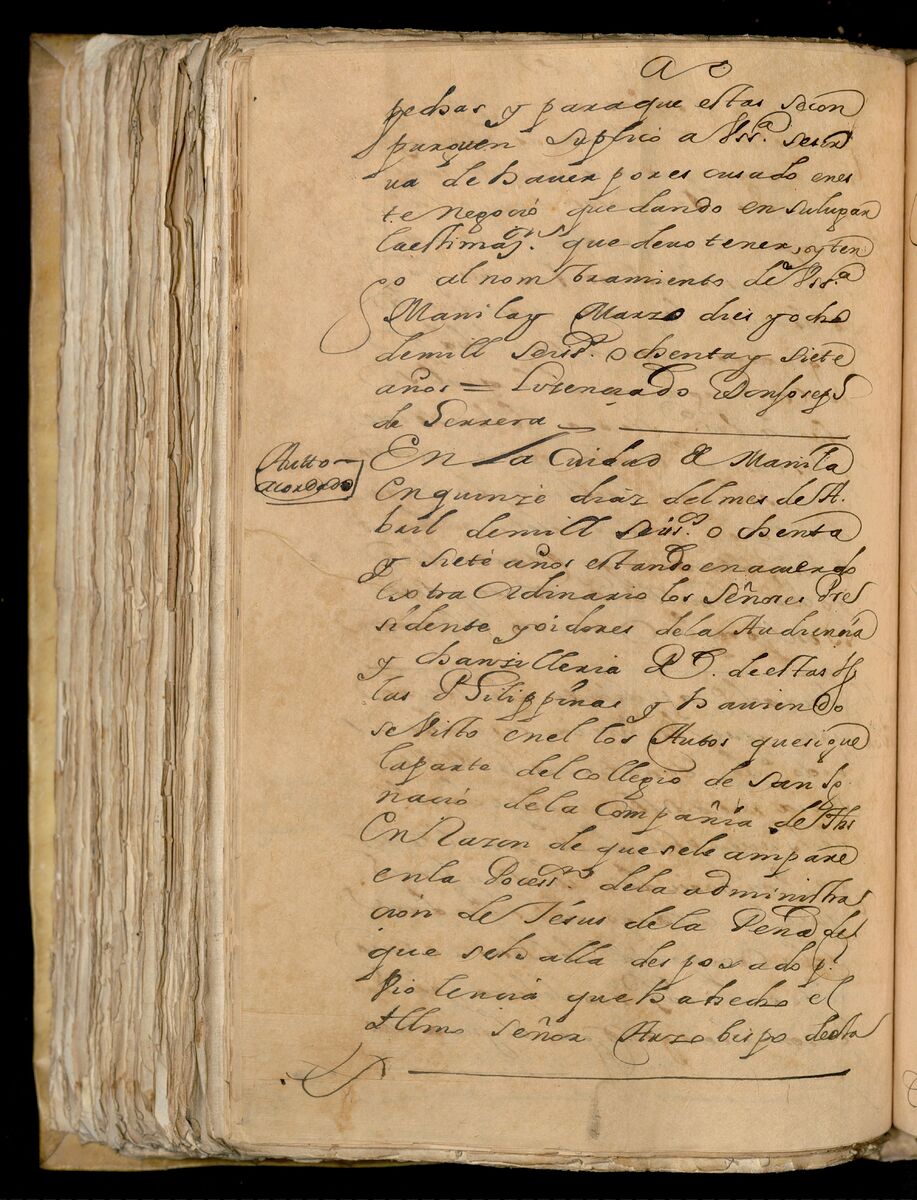 pechas y paraque estas secon
puruen suplico a Vssª. sesir
va de haver por es cusado enes
te negocio que dando en sulugar
la estimazⁿ. que devo tener, y ten
go al nom bramiento de Vssª
Manila y Marzo dies y ocho
demill seisᵒˢ. ochenta y siete
años = Lizenciado Don Joseph
de Herrera
Autto
acordado
En la Ciudad de Manila
en quinze diaz del mes de A.
bril demill seisᵒˢ. ochenta
y siete años estando en acuerdo
extra ordinario los señores Pres
sidente y oidores de la Audiencia
y chanzilleria Rˡ. de estas Ys
las Philippinas y haviendo
se visto en el los Autos quesigue
la parte del collegio de san Ig
nacio de la Compañia de Jhs
En Razon de que sele ampare
en la Posessⁿ. de la administras
cion de Jesus de la Peña del
que se halla despoxado p.ʳ
violencia que ha hecho el
Illmo señor Arzobispo de esta